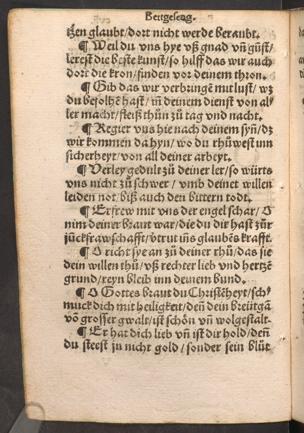 Bettgesang.
tzen glaubt/dort nicht werde beraubt.
¶ Weil du vns hye vß gnad vñ gůst/
lerest die beste kunst/so hilff das wir auch
dort die kron/finden vor deinem thron.
¶ Gib das wir verbringē mit lust/wz
du befolhē hast/in deinem dienst von al/
ler macht/fleiß thůn zů tag vnd nacht.
¶ Regier vns hie nach deinem syñ/dz
wir kommen da hyn/wo du rhůwest inn
sicherheyt/von all deiner arbeyt.
¶ Verley gedult zů deiner ler/so würts
vns nicht zů schwer/vmb deinet willen
leiden not/biß auch den bittern todt.
¶ Erfrew mit vns der engel schar/O
nim deiner braut war/die du dir hast zůr
jůckfrawschafft/vtrut iñs glaubēs krafft.
¶ O richt sye an zů deiner rhů/das sie
dein willen thů/vß rechter lieb vnd hertzē
grund/reyn bleib inn deinem bund.
¶ O Gottes braut du Christēheyt/sch/
muck dich mit heiligkeit/deñ dein breütgā
vō grosser gwalt/ist schön vñ wolgestalt.
¶ Er hat dich lieb vñ ist dir hold/deñ
du steest jn nicht gold/sonder sein blůt